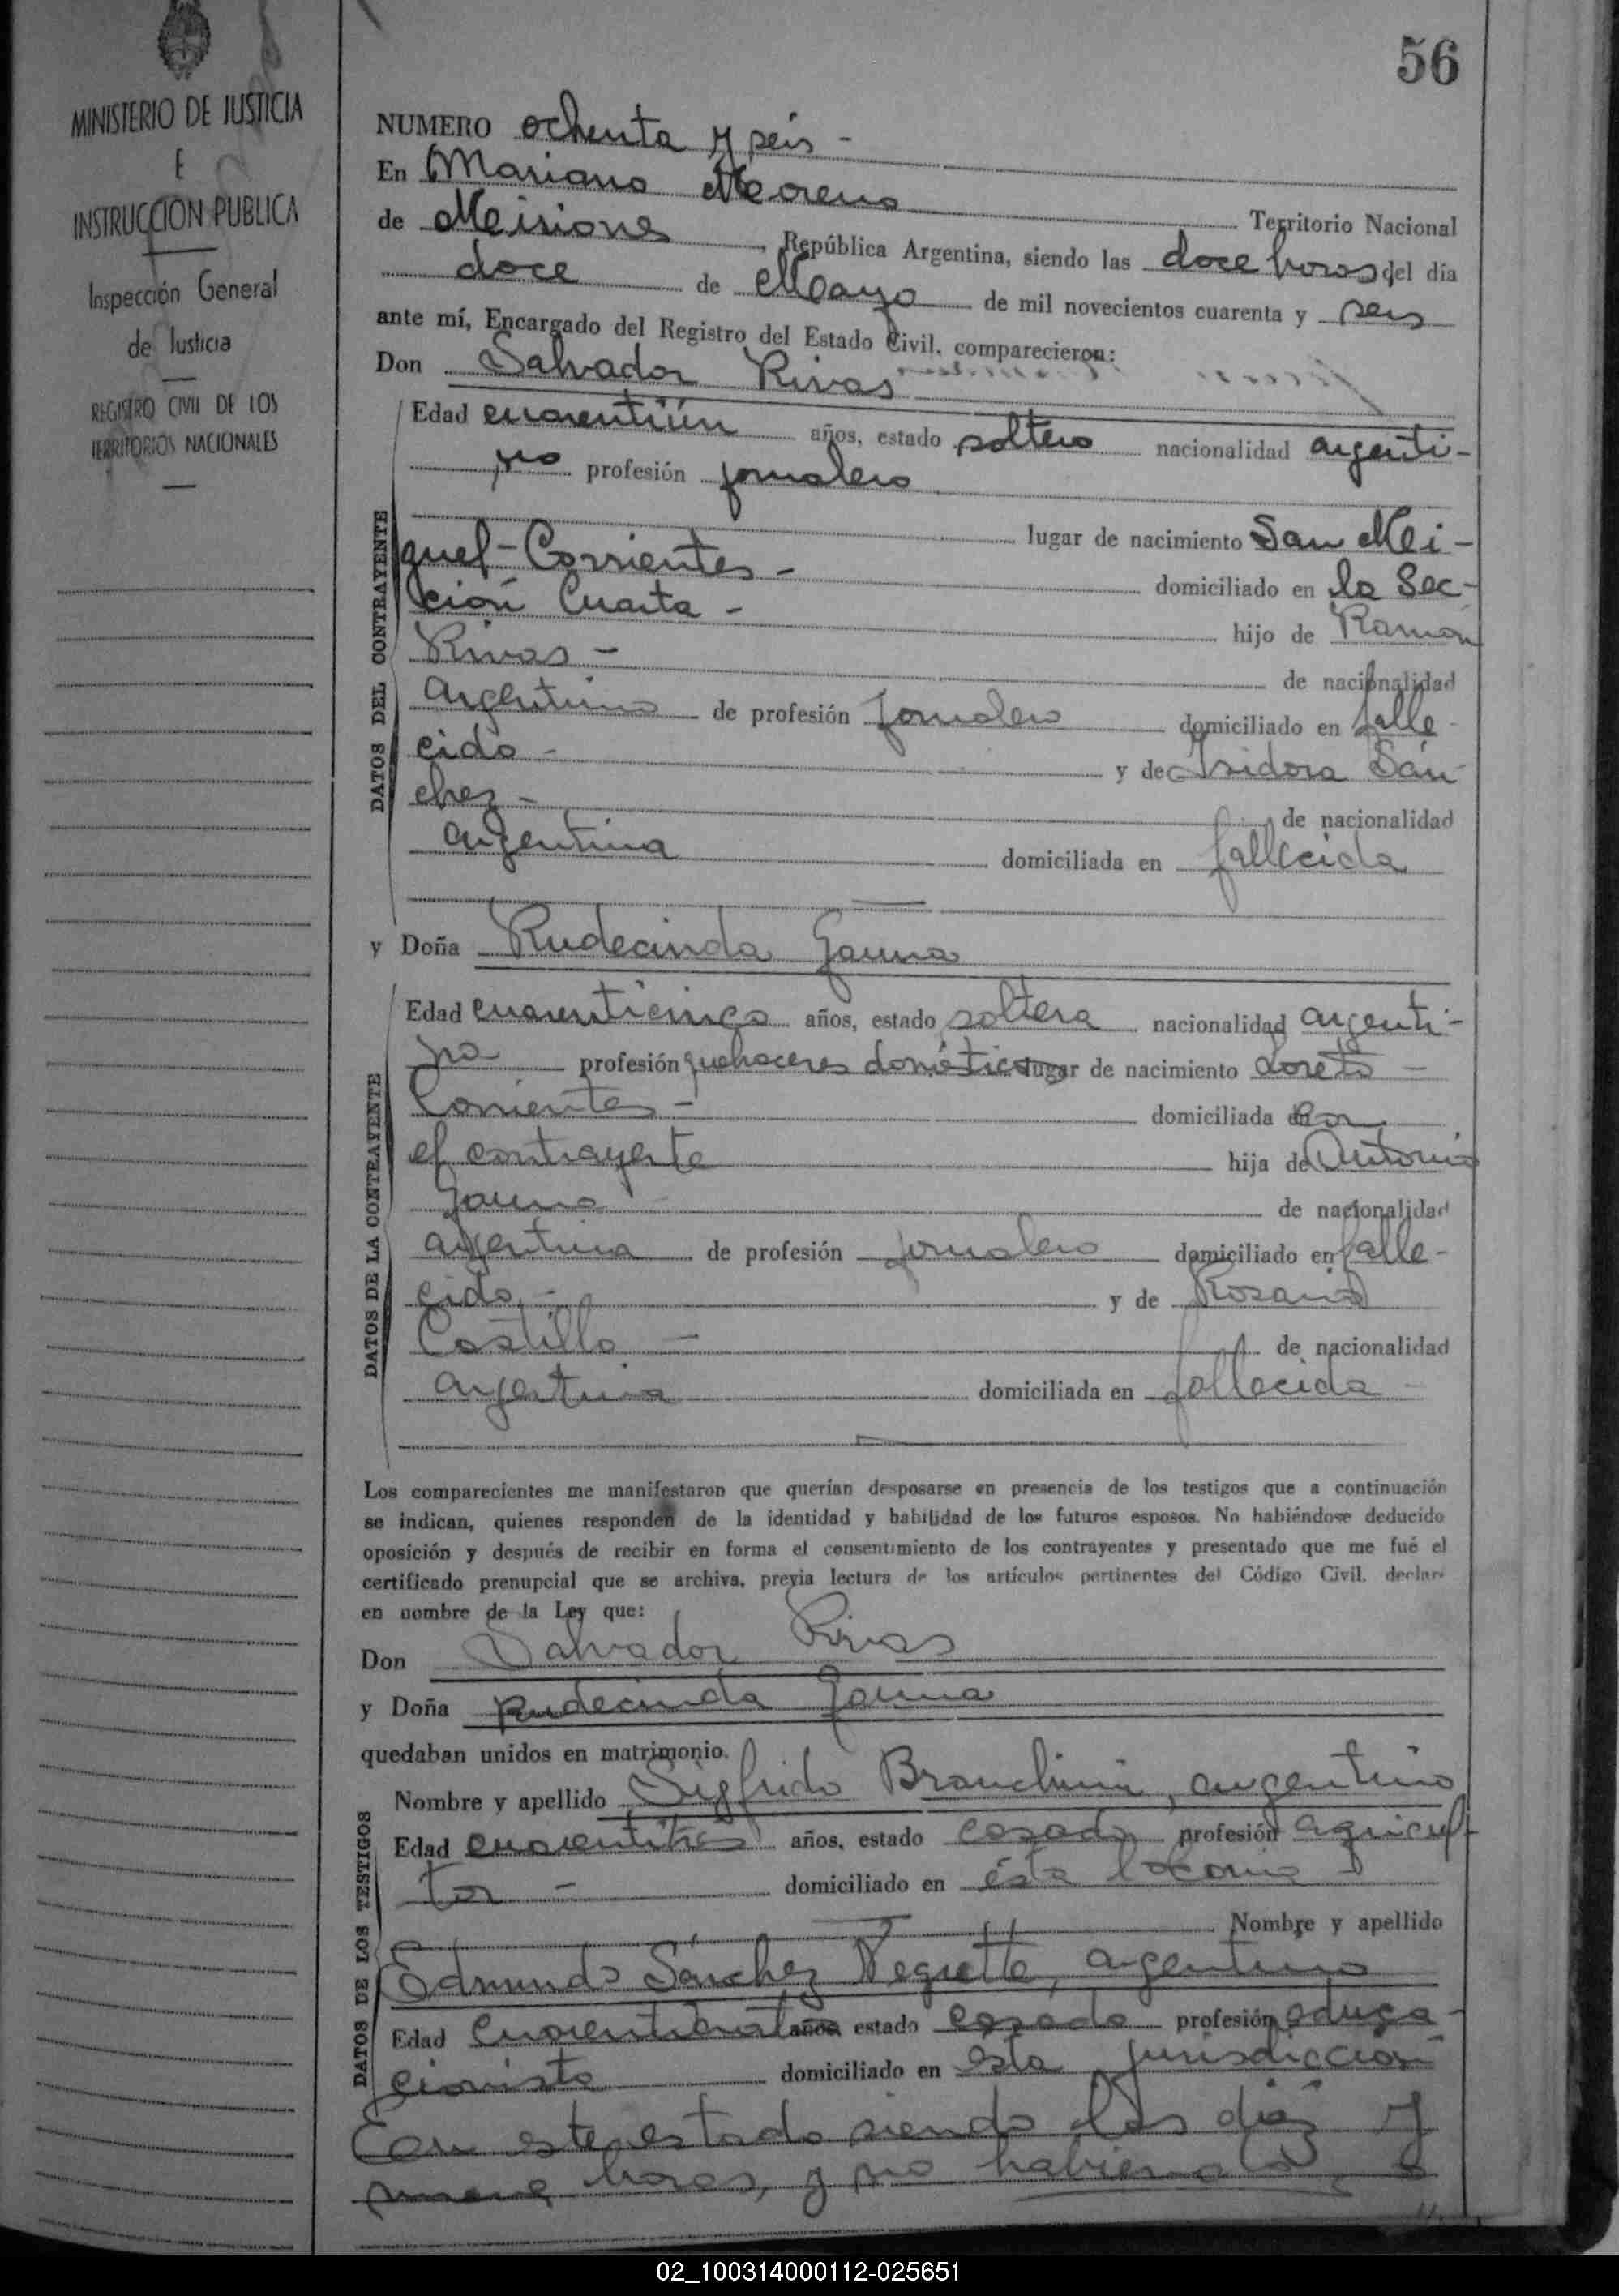 56
MINISTERIO DE JUSTICIA
E
INSTRUCCION PUBLICA
Inspección General
de Justicia
REGISTRO CIVIL DE LOS
TERRITORIOS NACIONALES
NUMERO ochenta y seis -
En Mariano Moreno Territorio Nacional
de Misiones, República Argentina, siendo las doce horas del día
doce de Mayo de mil novecientos cuarenta y seis
ante mí, Encargado del Registro del Estado Civil, comparecieron:
Don Salvador Rivas
DATOS DEL CONTRAYENTE
Edad cuarentiún años, estado soltero nacionalidad argenti-
no profesión jornalero
lugar de nacimiento San Mi-
guel - Corrientes - domiciliado en la Sec-
ción Cuarta - hijo de Ramón
Rivas - de nacionalidad
argentino de profesión jornalero domiciliado en falle-
cido - y de Isidora Sán
chez - de nacionalidad
argentina domiciliada en fallecida
y Doña Rudecinda Gauna
DATOS DE LA CONTRAYENTE
Edad cuarenticinco años, estado soltera nacionalidad argenti-
na profesión quehaceres domésticos lugar de nacimiento Loreto -
Corrientes - domiciliada en con
el contrayente hija de Antonio
Gauna de nacionalidad
argentina de profesión jornalero domiciliado en falle-
cido - y de Rosario
Castillo - de nacionalidad
argentina domiciliada en fallecida -
Los comparecientes me manifestaron que querían desposarse en presencia de los testigos que a continuación
se indican, quienes responden de la identidad y habilidad de los futuros esposos. No habiéndose deducido
oposición y después de recibir en forma el consentimiento de los contrayentes y presentado que me fué el
certificado prenupcial que se archiva, previa lectura de los artículos pertinentes del Código Civil, declaré
en nombre de la Ley que:
Don Salvador Rivas
y Doña Rudecinda Gauna
quedaban unidos en matrimonio.
DATOS DE LOS TESTIGOS
Nombre y apellido Sigfrido Branchini, argentino
Edad cuarentitres años, estado casado profesión agricul-
tor - domiciliado en ésta
Nombre y apellido
Edmundo Sánchez Negrette, argentino
Edad años estado casado profesión educa-
cionista domiciliado en ésta jurisdicción
En este estado siendo las diez y
nueve horas, y no
02_100314000112-025651